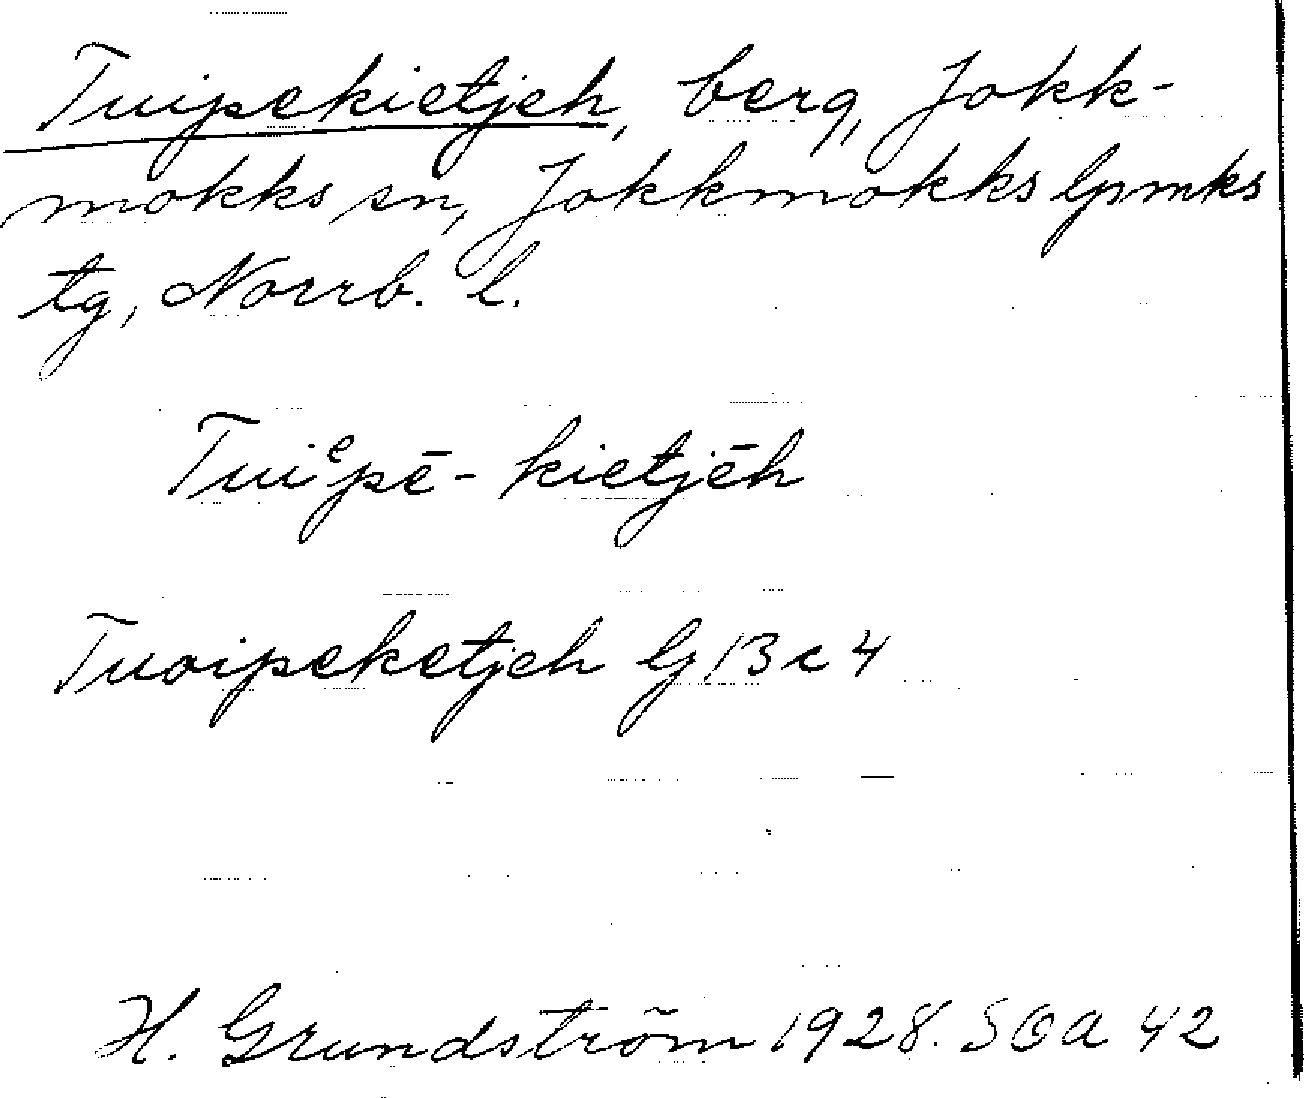 Tuipekietjeh, berg, Jokk-
mokks sn, Jokkmokks lpmks
tg, Norrb. l.
Tuiᵉpē- kietjēh
Tuoipeketjeh Gj 13 c 4
H. Grundström 1928. SOA 42